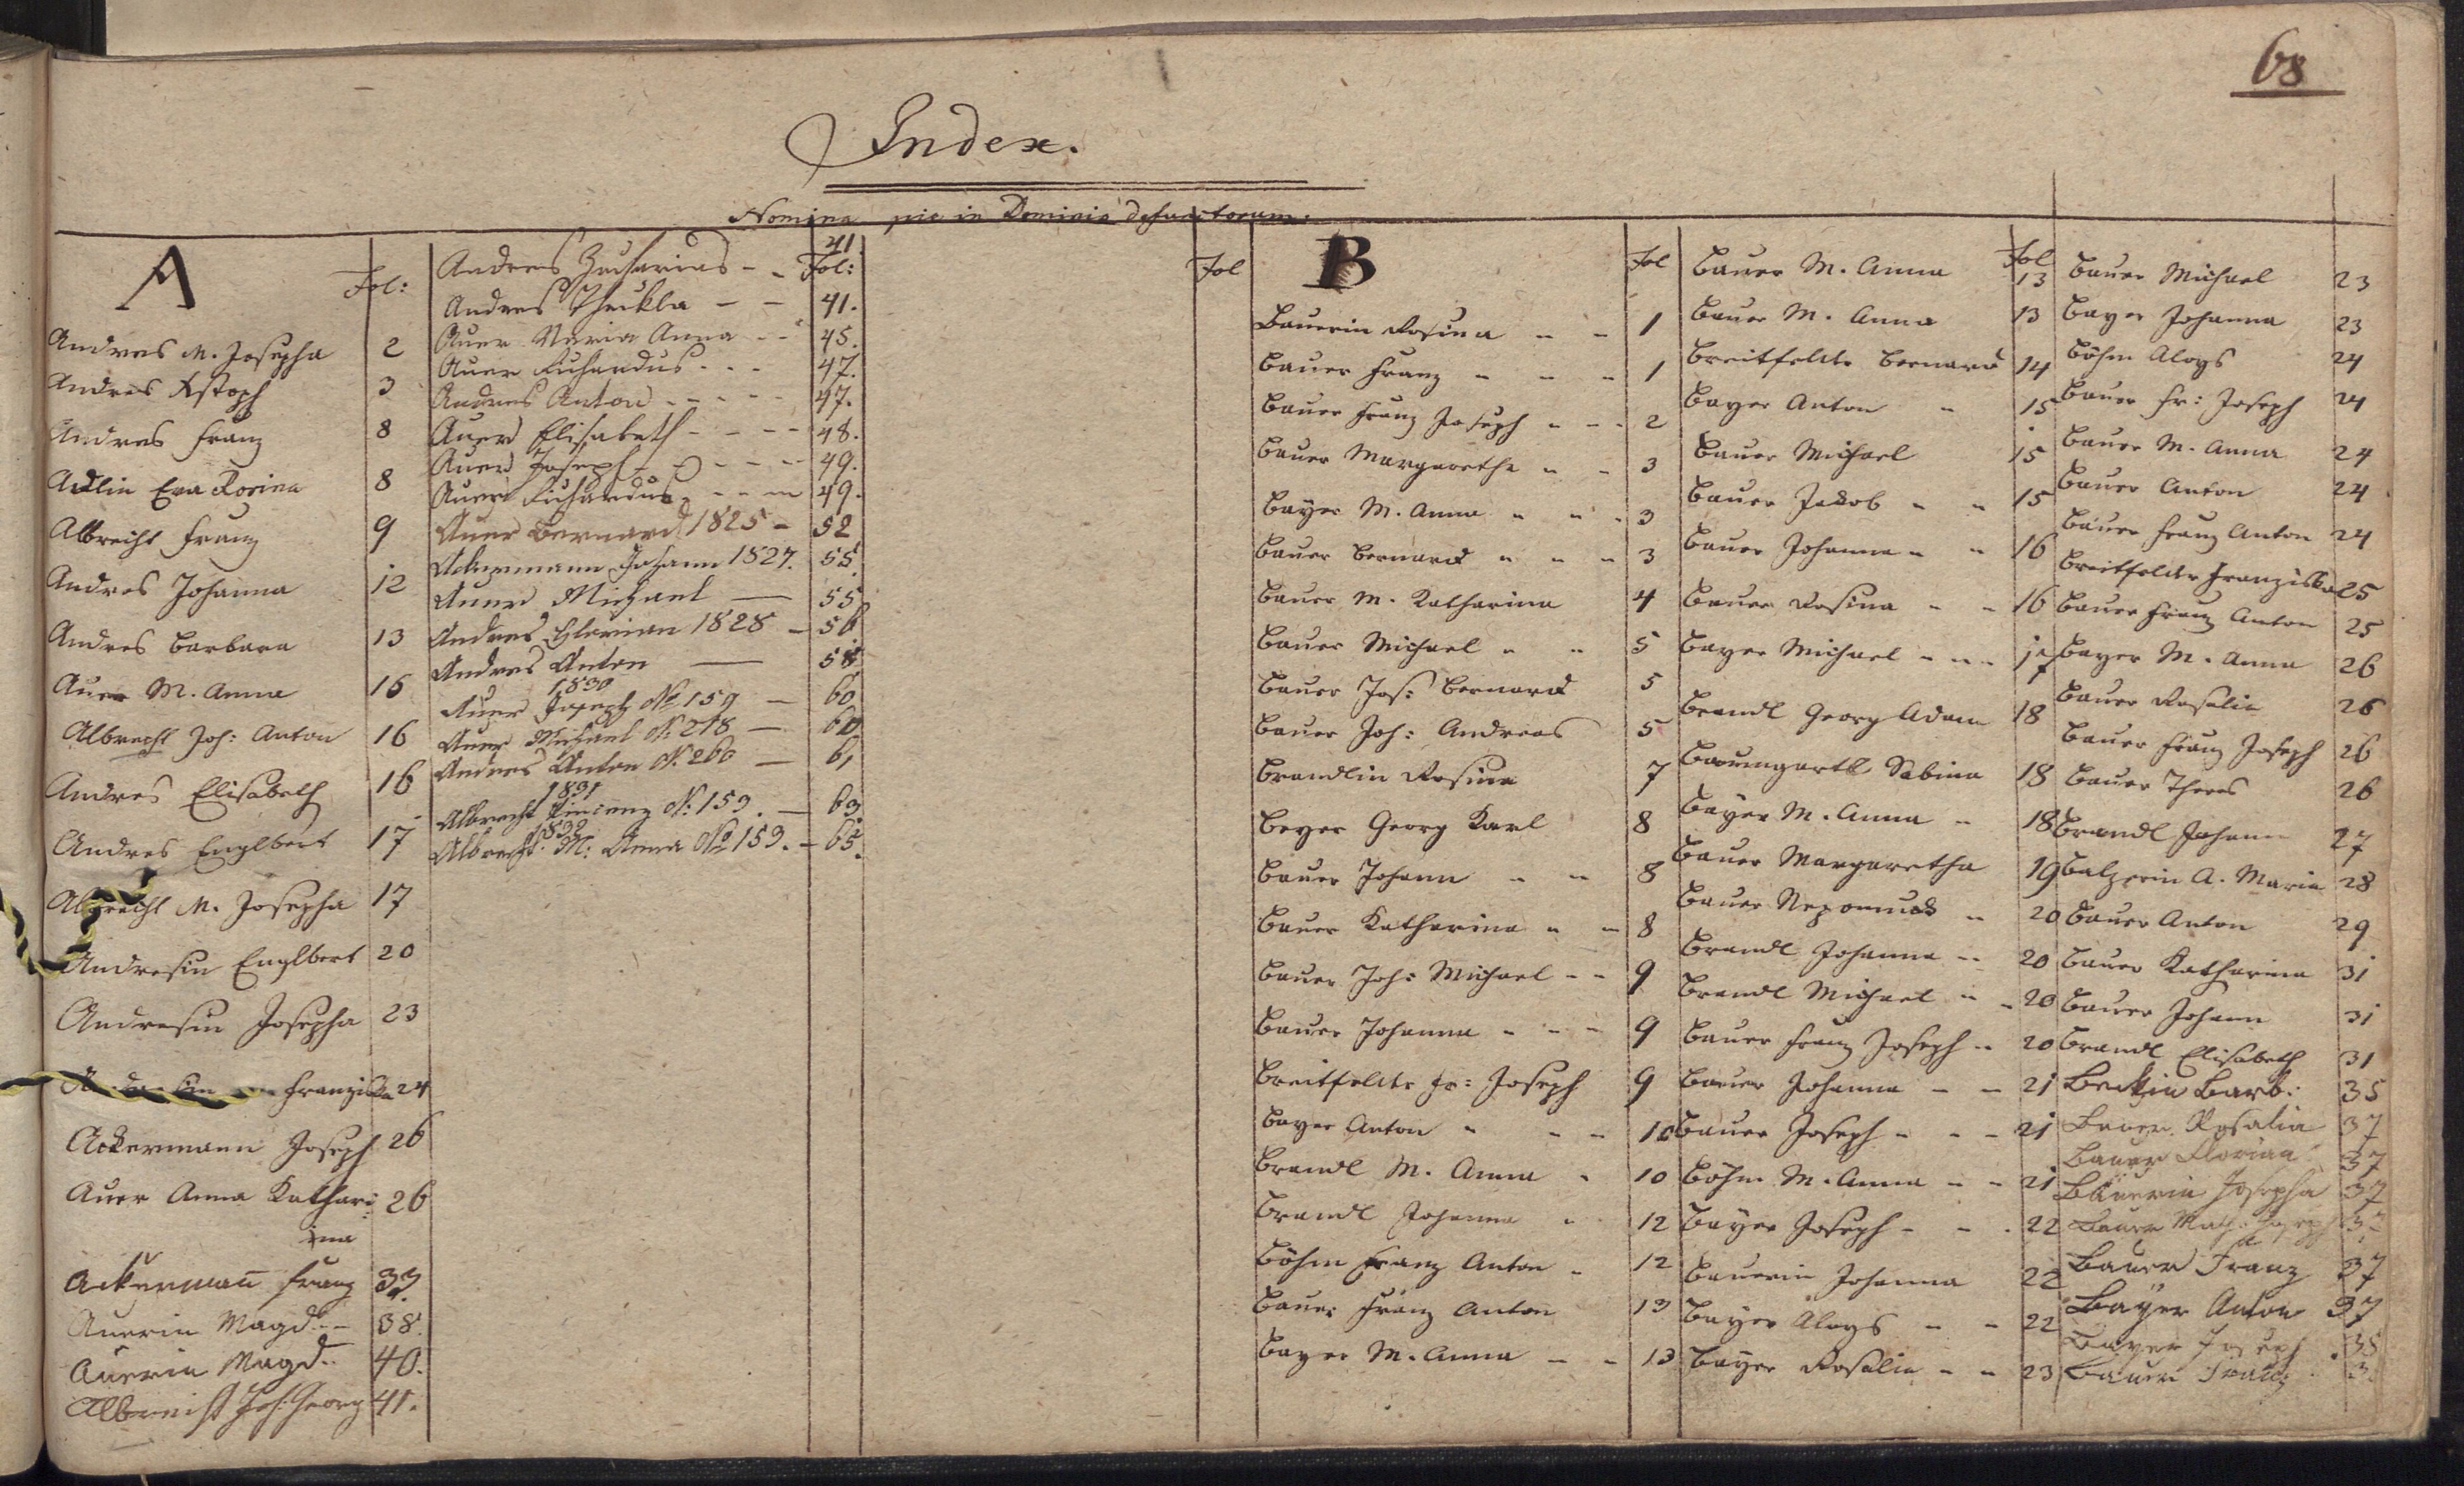 68
Index.
Nomina pie in Domino defunctorum.
A Fol:
Andres M. Josepha 2
Andres Kstoph 3
Andres Franz 8
Adlin Eva Rosina 8
Albrecht Franz 9
Andres Johanna 12
Andres Barbara 13
Auer M. Anna 15
Albrecht Joh: Anton 16
Andres Elisabeth 16
Andres Englbert 17
Albrecht M. Josepha 17
Andresin Englbert 20
Andresin Josepha 23
Franziska 24
Ackermann Joseph 26
Auer Anna Kathari: 26
ina
Ackermañ Franz 33.
Auerin Magd. 38.
Auerin Magd. 40.
Albrecht Joh. Georg 41.
Andres Zacharias - - 41
Fol:
Andres Theckla - - 41.
Auer Maria Anna - - 45.
Auer Richardus - - - 47.
Andres Anton - - - - 47.
Auer Elisabeth - - - - 48.
Auer Joseph - - - - 49.
Auer Richardus - - - 49.
Auer Bernard 1825 - 52
Ackermann Johann 1827. 55.
Auer Michael — 55
Andres Florian 1828 - 56
Andres Anton — 58
1830
Auer Joseph No 159 — 60
Auer Michael N. 218 — 60
Andres Anton N. 260 — 61
1831
Albrecht Vincenz N: 159. — 63
1832
Albrecht M: Anna No 159. — 65.
Fol
B Fol
Bauerin Rosina - - 1
Bauer Franz - - - 1
Bauer Franz Joseph - - - 2
Bauer Margaretha - - 3
Bayer M. Anna - - - 3
Bauer Bernard - - - 3
Bauer M. Katharina 4
Bauer Michael - - 5
Bauer Jos: Bernard 5
Bauer Joh: Andreas 5
Brandlin Rosina 7
Beyer Georg Karl 8
Bauer Johann - - 8
Bauer Katharina - - 8
Bauer Joh: Michael - - 9
Bauer Johanna - - - 9
Breitfelder Fr: Joseph 9
Bayer Anton - - - 10
Brandl M. Anna - 10
Brandl Johanna - 12
Böhm Franz Anton - 12
Bauer Franz Anton 13
Bayer M. Anna - - 13
Fol
Bauer M. Anna 13
Bauer M. Anna 13
Breitfelder Bernard 14
Bayer Anton - 15
Bauer Michael 15
Bauer Jakob - - 15
Bauer Johanna - - 16
Bauer Rosina - - 16
Bayer Michael - - - 17
Brandl Georg Adam 18
Baumgartl Sabina 18
Bayer M. Anna - 18
Bauer Margaretha 19
Bauer Nepomuck - 20
Brandl Johanna - 20
Brandl Michael - - 20
Bauer Franz Joseph - 20
Bauer Johanna - - 21
Bauer Joseph - - - 21
Böhm M. Anna - - 21
Bayer Joseph - - - 22
Bauerin Johanna 22
Bayer Aloys - - 22
Bayer Rosalia - - 23
Bauer Michael 23
Bayer Johanna 23
Böhm Aloys 24
Bauer Fr: Joseph 24
Bauer M. Anna 24
Bauer Anton 24
Bauer Franz Anton 24
Breitfelder Franziska 25
Bauer Franz Anton 25
Bayer M. Anna 26
Bauer Rosalia 26
Bauer Franz Joseph 26
Bauer Theres 26
Brandl Johann 27
Balzerin A. Maria 28
Bauer Anton 29
Bauer Katharina 31
Bauer Johann 31
Brandl Elisabeth 31
Beckin Barb: 35
Bauer Rosalia 37
Bauer Florian 37
Bäuerin Josepha 37
Bauer Joseph
Bauer Franz 37
Bayer Anton 37
Bayer Joseph
Bauer Franz